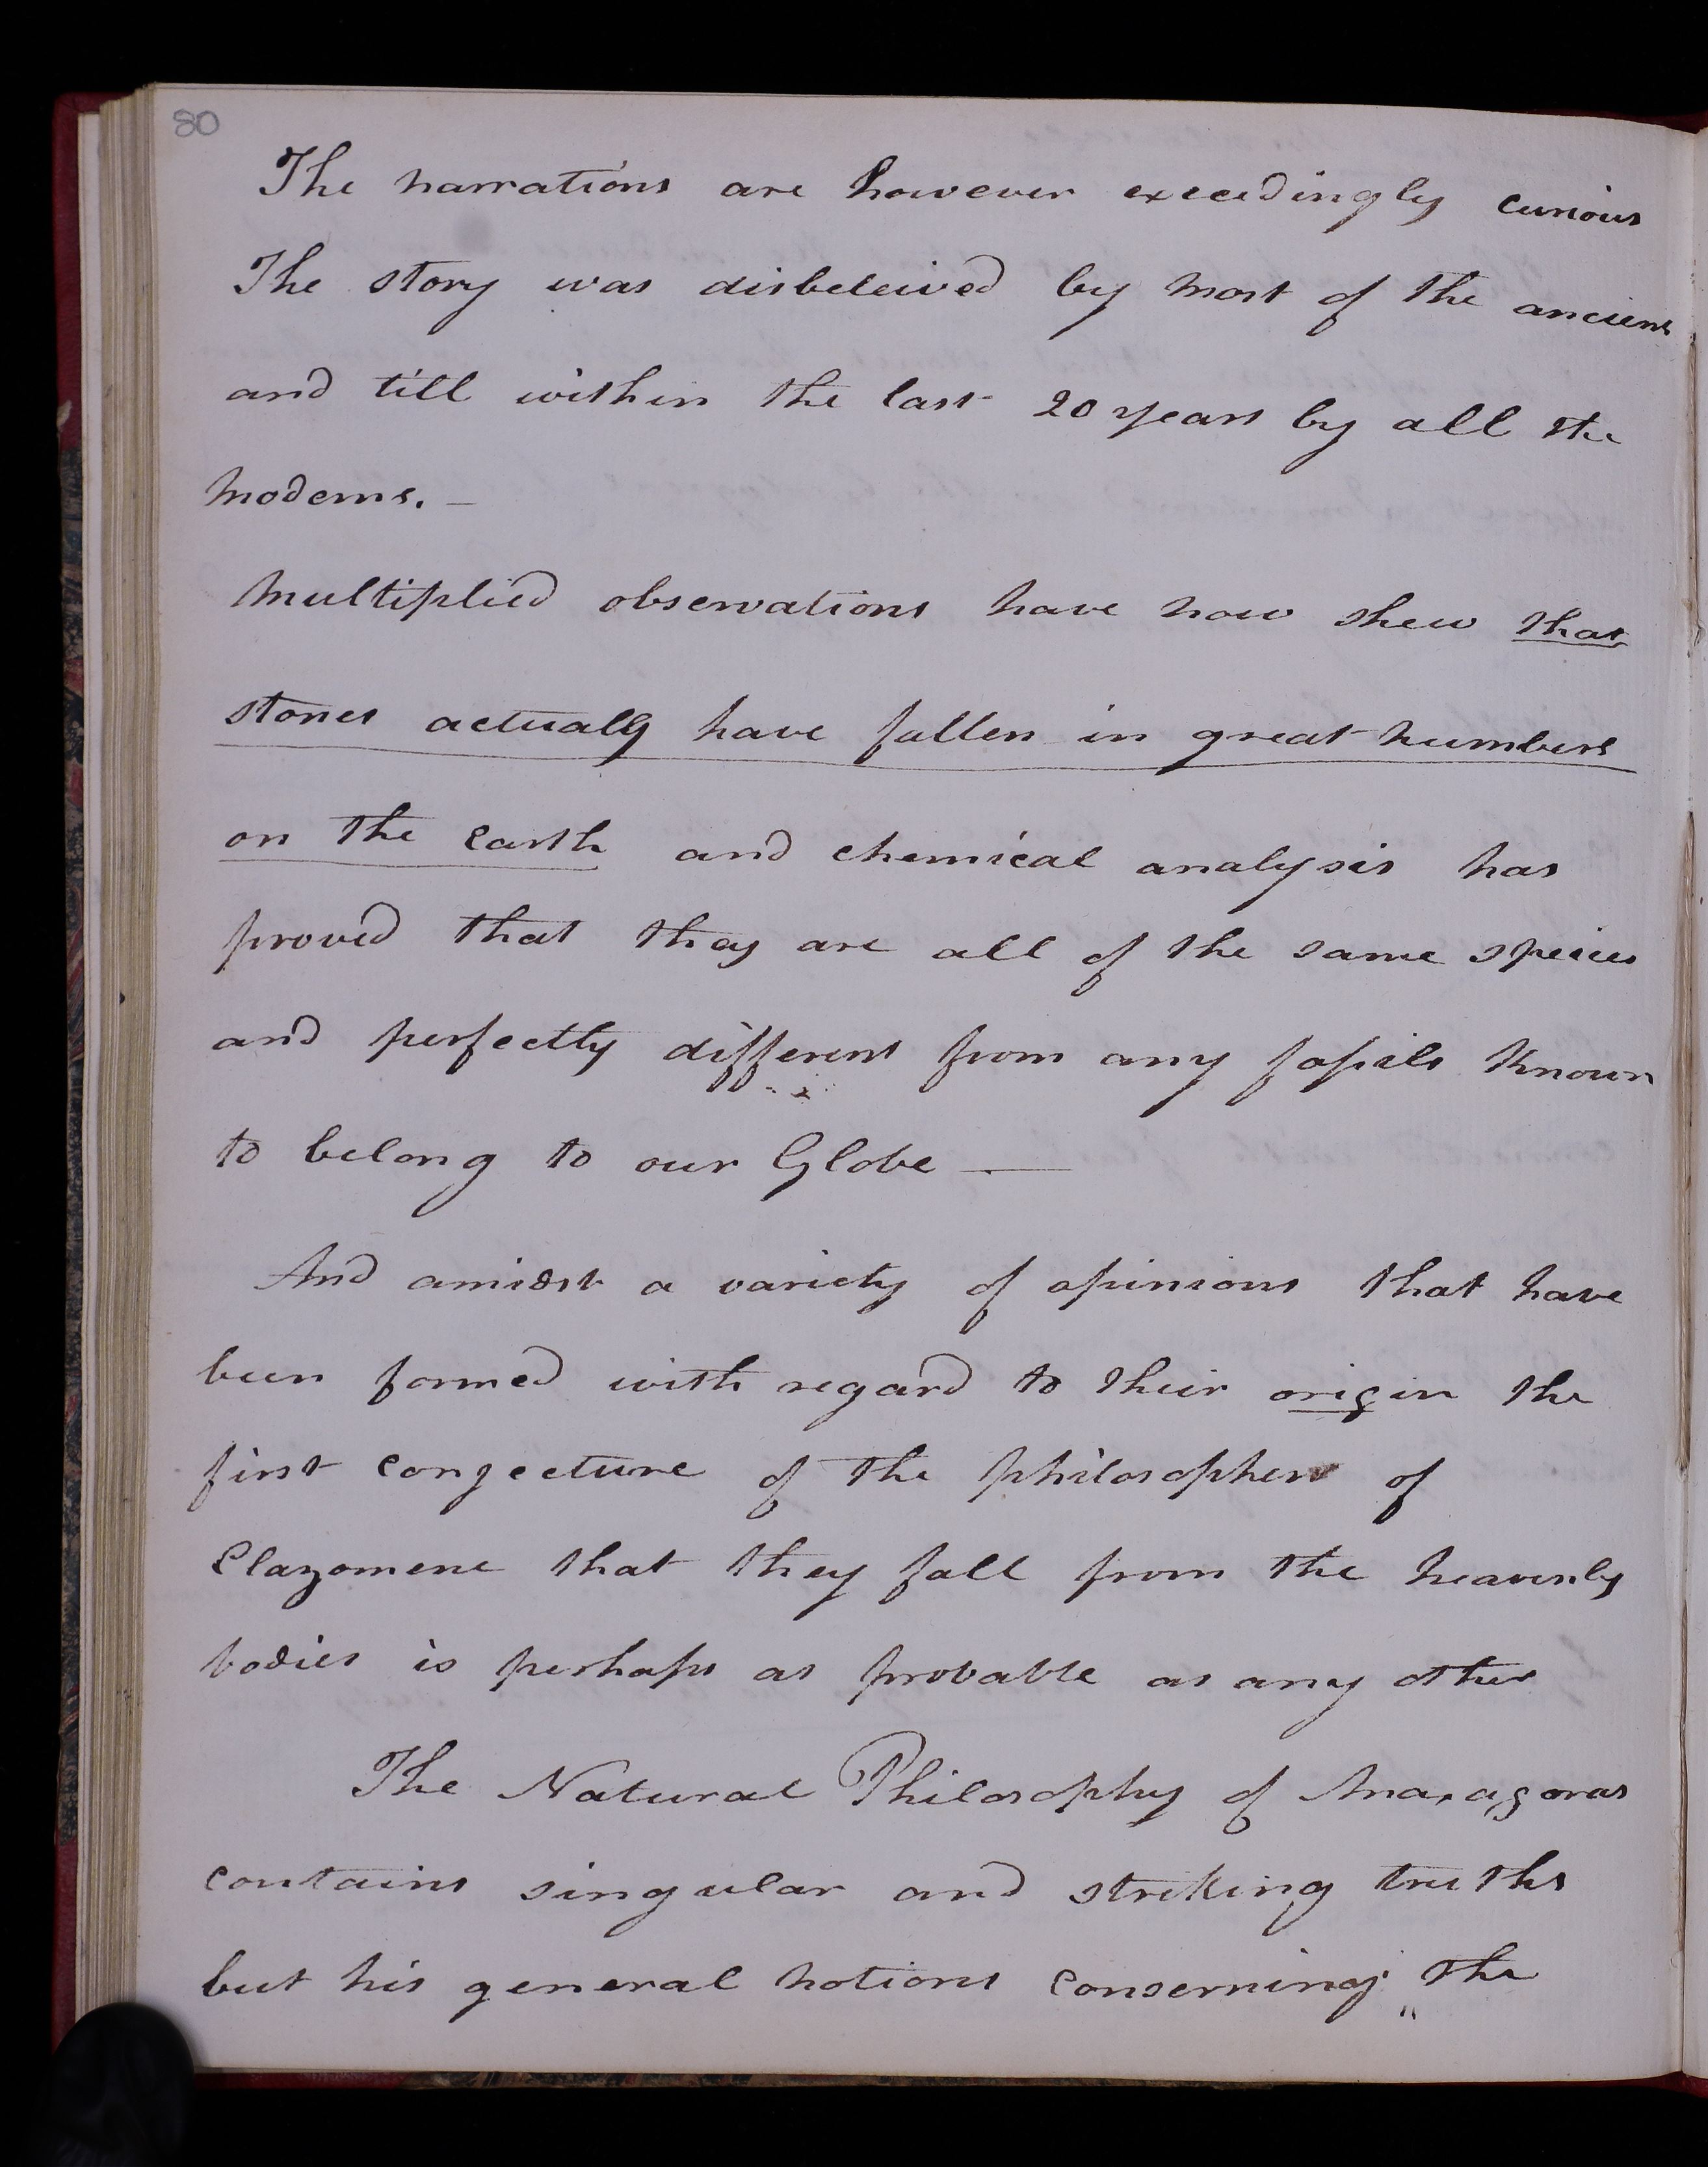 80
The narrations are however exceedingly curious
The story was disbeleived by most of the ancients
and till within the last 20 years by all the
moderns. —
Multiplied observations have now shew that
stones actually have fallen in great numbers
on the Earth and chemical analysis has
proved that they are all of the same speices
and perfectly different from any fossils Known
to belong to our Globe —
And amidst a variety of opinions that have
been formed with regard to their origin the
first conjecture of the philosopher of
Clazomene that they fall from the heavenly
bodies is perhaps as probable as any other
The Natural Philosophy of Anaxagoras
contains singular and striking truths
but his general notions conserning "the